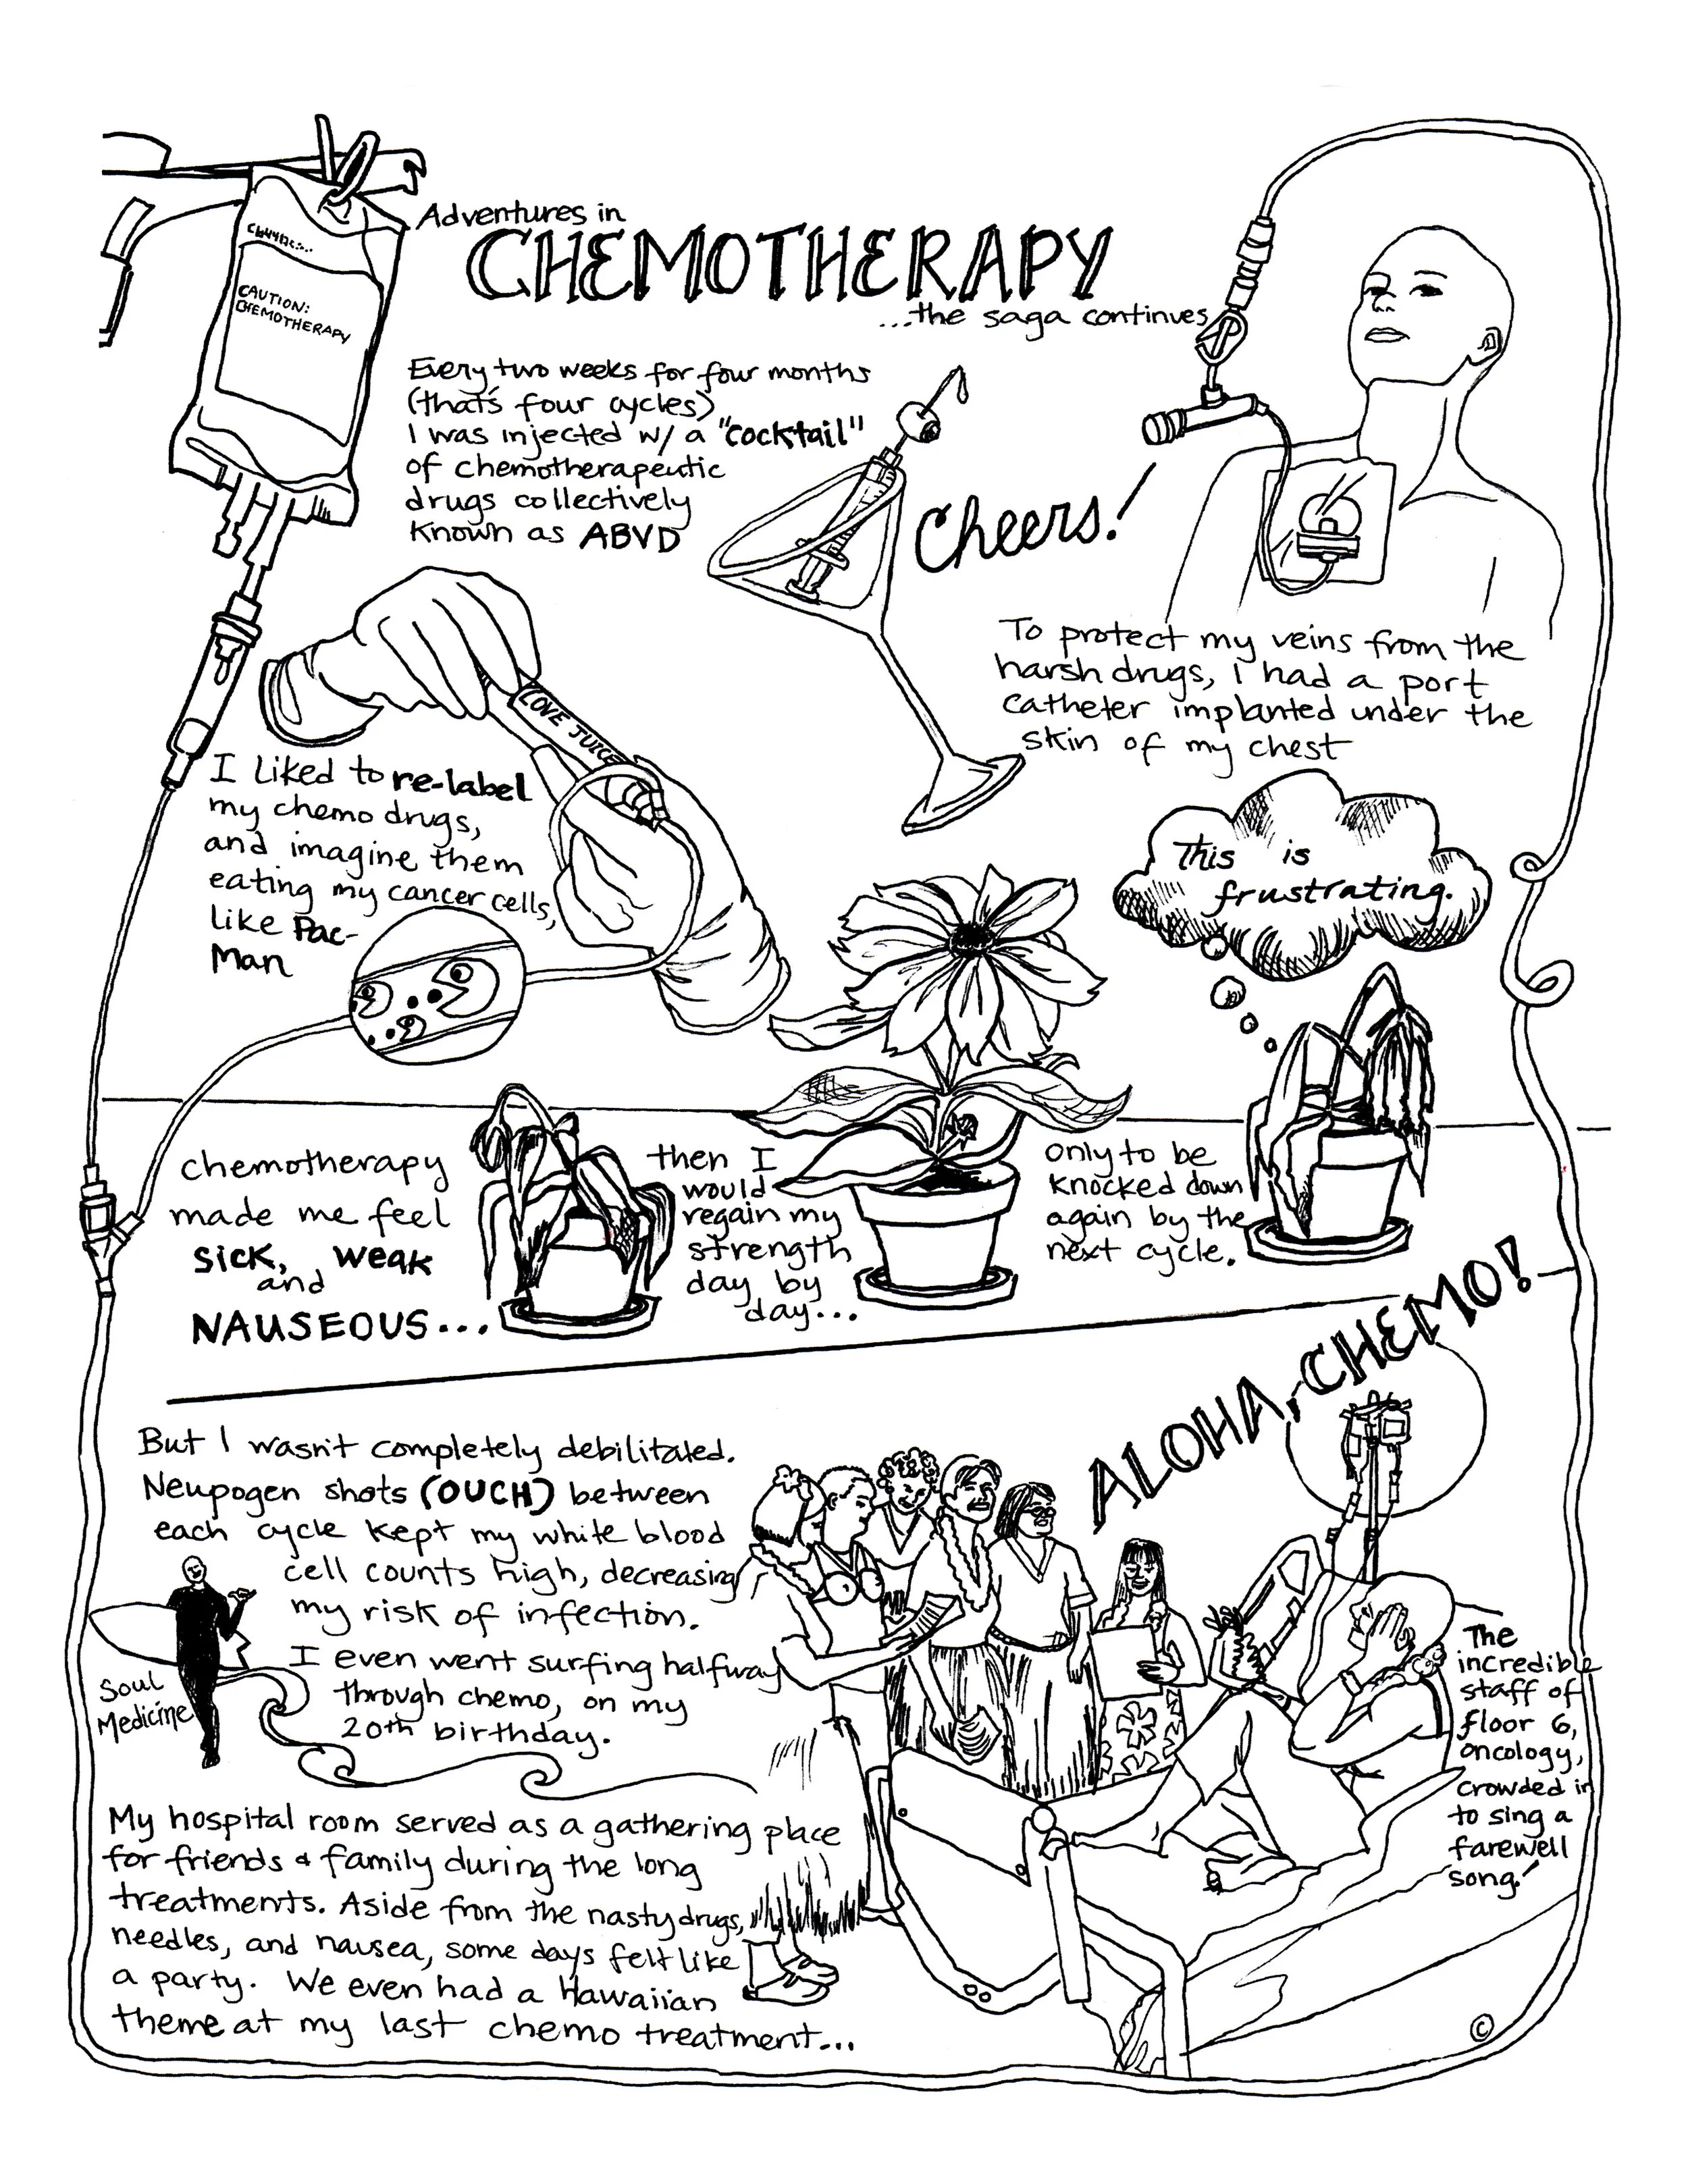 Adventures in
CHEMOTHERAPY
...the saga continues
CAUTION:
CHEMOTHERAPY
Every two weeks for four months
(that's four cycles)
I was injected w/ a "cocktail"
of chemotherapeutic
drugs collectively
known as ABVD
Cheers!
To protect my veins from the
harsh drugs, I had a port
catheter implanted under the
skin of my chest
LOVE JUICE
I liked to re-label
my chemo drugs,
and imagine them
eating my cancer cells,
like Pac-
Man
This is
frustrating.
chemotherapy
made me feel
sick, weak
and
NAUSEOUS...
then I
would
regain my
strength
day by
day...
only to be
knocked down
again by the
next cycle.
ALOHA, CHEMO!
But I wasn't completely debilitated.
Neupogen shots (OUCH) between
each cycle kept my white blood
cell counts high, decreasing
my risk of infection.
I even went surfing halfway
through chemo, on my
20th birthday.
Soul
Medicine
The
incredible
staff of
floor 6,
oncology,
crowded in
to sing a
farewell
song!
My hospital room served as a gathering place
for friends & family during the long
treatments. Aside from the nasty drugs,
needles, and nausea, some days felt like
a party. We even had a Hawaiian
theme at my last chemo treatment...
©